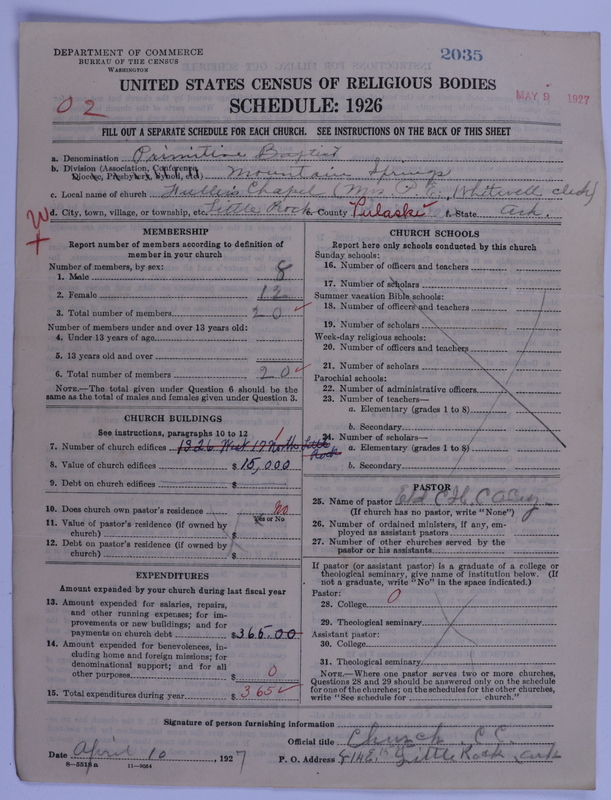 DEPARTMENT OF COMMERCE
BUREAU OF THE CENSUS
WASHINGTON
2035
UNITED STATES CENSUS OF RELIGIOUS BODIES
MAY 9 1927
SCHEDULE: 1926
02
FILL OUT A SEPARATE SCHEDULE FOR EACH CHURCH. SEE INSTRUCTIONS ON THE BACK OF THIS SHEET
a. Denomination Primitive Baptist
b. Division (Association, Conference, Diocese, Presbytery, Synod, etc.) Mountain Springs
c. Local name of church Chapel (Mrs. Whitwell clerk)
d. City, town, village, or township, etc. Little Rock County Pulaski f. State Ark.
MEMBERSHIP
Report number of members according to definition of member in your church
Number of members, by sex:
1. Male 8
2. Female 12
3. Total number of members 20
Number of members under and over 13 years old:
4. Under 13 years of age
5. 13 years old and over
6. Total number of members 20
NOTE.—The total given under Question 6 should be the same as the total of males and females given under Question 3.
CHURCH BUILDINGS
See instructions, paragraphs 10 to 12
7. Number of church edifices 1326 West 17 Little Rock
8. Value of church edifices $15,000
9. Debt on church edifices $
10. Does church own pastor's residence No
Yes or No
11. Value of pastor's residence (if owned by church) $
12. Debt on pastor's residence (if owned by church) $
EXPENDITURES
Amount expended by your church during last fiscal year
13. Amount expended for salaries, repairs, and other running expenses; for improvements or new buildings; and for payments on church debt $365.00
14. Amount expended for benevolences, including home and foreign missions; for denominational support; and for all other purposes $0
15. Total expenditures during year $365
CHURCH SCHOOLS
Report here only schools conducted by this church
Sunday schools:
16. Number of officers and teachers
17. Number of scholars
Summer vacation Bible schools:
18. Number of officers and teachers
19. Number of scholars
Week-day religious schools:
20. Number of officers and teachers
21. Number of scholars
Parochial schools:
22. Number of administrative officers
23. Number of teachers—
a. Elementary (grades 1 to 8)
b. Secondary
24. Number of scholars—
a. Elementary (grades 1 to 8)
b. Secondary
PASTOR
25. Name of pastor Eld. C. H. Casey
(If church has no pastor, write "None")
26. Number of ordained ministers, if any, employed as assistant pastors
27. Number of other churches served by the pastor or his assistants
If pastor (or assistant pastor) is a graduate of a college or theological seminary, give name of institution below. (If not a graduate, write "No" in the space indicated.)
Pastor:
28. College 0
29. Theological seminary
Assistant pastor:
30. College
31. Theological seminary
NOTE.—Where one pastor serves two or more churches, Questions 28 and 29 should be answered only on the schedule for one of the churches; on the schedules for the other churches, write "See schedule for church."
Signature of person furnishing information
Official title Church C.C.
Date April 10, 1927
P. O. Address Little Rock, Ark
8-5518a
11-9064